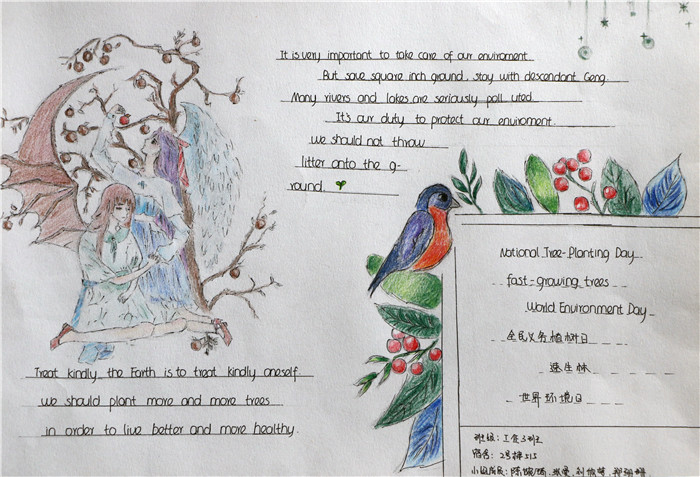 It is very important to take care of our enviroment
But save square inch ground, stay with descendant Geng
Many rivers and lakes are seriously poll uted
It's our duty to protect our enviroment.
we should not throw
litter onto the g-
round.
National Tree-Planting Day
fast-growing trees
World Environment Day
全民义务植树日
速生林
世界环境日
Treat kindly the Earth is to treat kindly oneself
we should plant more and more trees
in order to live better and more healthy.
班级：工食3班
宿舍：2号楼515
小组成员：陈